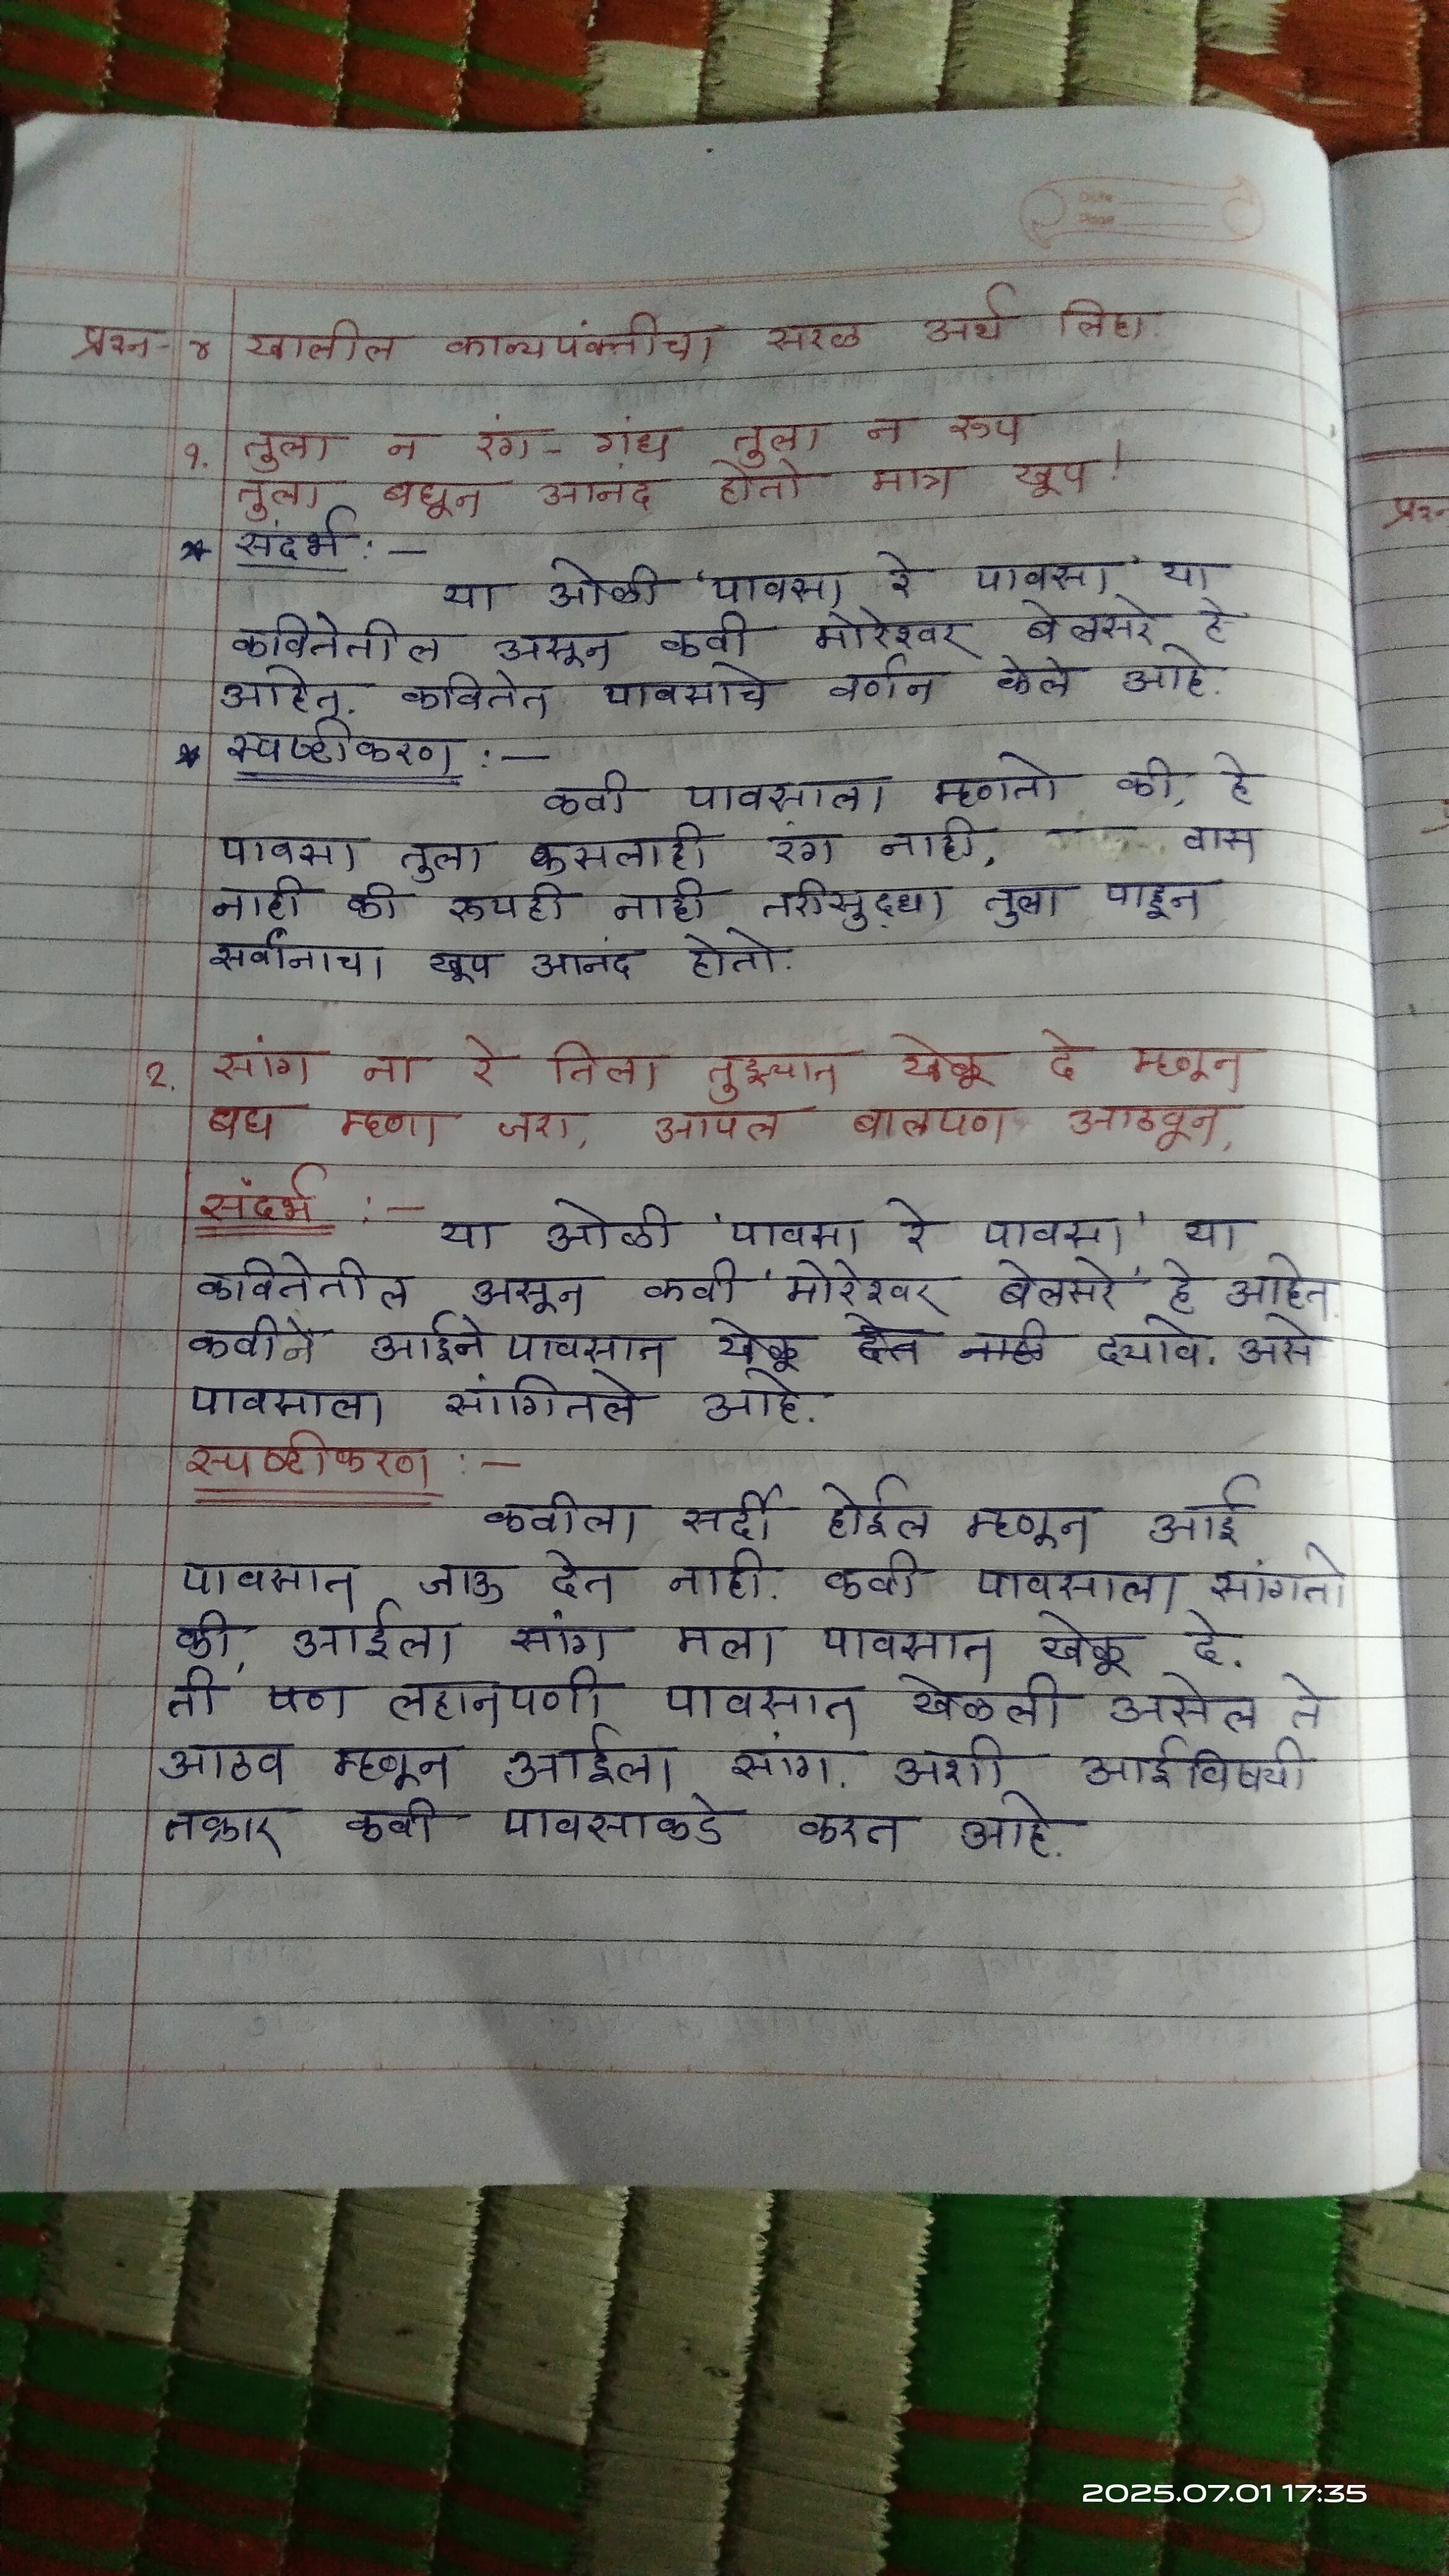 Date
Page
प्रश्न-४ खालील काव्यपंक्तीचा सरळ अर्थ लिहा.
१. तुला न रंग-गंध तुला न रूप
तुला बघून आनंद होतो मात्र खूप!
* संदर्भ :-
या ओळी 'पावसा रे पावसा' या
कवितेतील असून कवी मोरेश्वर बेलसरे हे
आहेत. कवितेत पावसाचे वर्णन केले आहे.
* स्पष्टीकरण :-
कवी पावसाला म्हणतो की, हे
पावसा तुला कुसलाही रंग नाही, वास
नाही की रूपही नाही तरीसुद्धा तुला पाहून
सर्वांनाचा खूप आनंद होतो.
२. सांग ना रे तिला तुझ्यात खेळू दे म्हणून
बघ म्हणा जरा, आपल बालपण आठवून,
संदर्भ :-
या ओळी 'पावसा रे पावसा' या
कवितेतील असून कवी 'मोरेश्वर बेलसरे' हे आहेत.
कवीने आईने पावसात खेळू देत नाही दयावे. असे
पावसाला सांगितले आहे.
स्पष्टीकरण :-
कवीला सर्दी होईल म्हणून आई
पावसात जाऊ देत नाही. कवी पावसाला सांगतो
की, आईला सांग मला पावसात खेळू दे.
ती पण लहानपणी पावसात खेळली असेल ते
आठव म्हणून आईला सांग. अशी आईविषयी
तक्रार कवी पावसाकडे करत आहे.
प्रश्न
2025.07.01 17:35